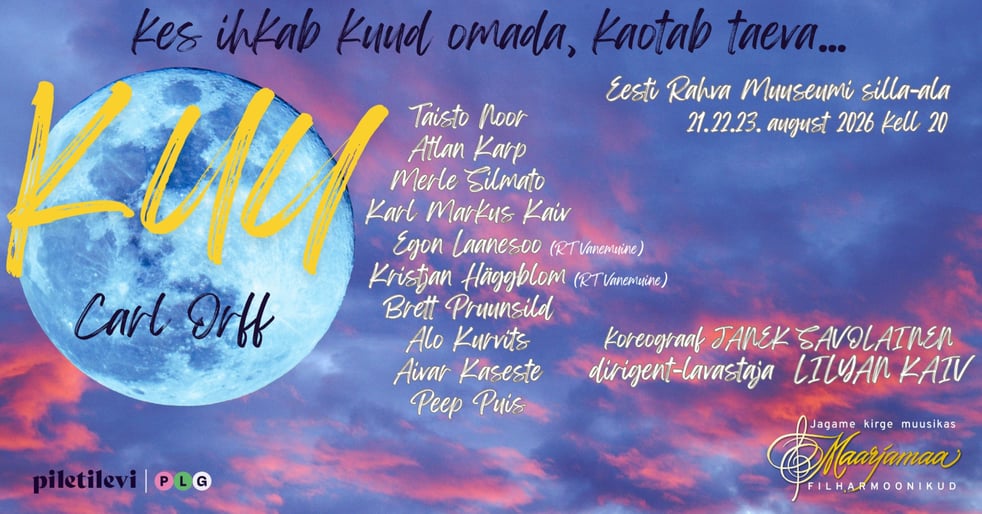 Kes ihkab kuud omada, kaotab taeva...
KUU
Carl Orff
Taisto Noor
Atlan Karp
Merle Silmato
Karl Markus Kaiv
Egon Laanesoo (RT Vanemuine)
Kristjan Häggblom (RT Vanemuine)
Brett Pruunsild
Alo Kurvits
Aivar Kaseste
Peep Puis
Eesti Rahva Muuseumi silla-ala
21.22.23. august 2026 kell 20
koreograaf JANEK SAVOLAINEN
dirigent-lavastaja LILYAN KAIV
piletilevi | PLG
Jagame kirge muusikas
Maarjamaa
FILHARMOONIKUD